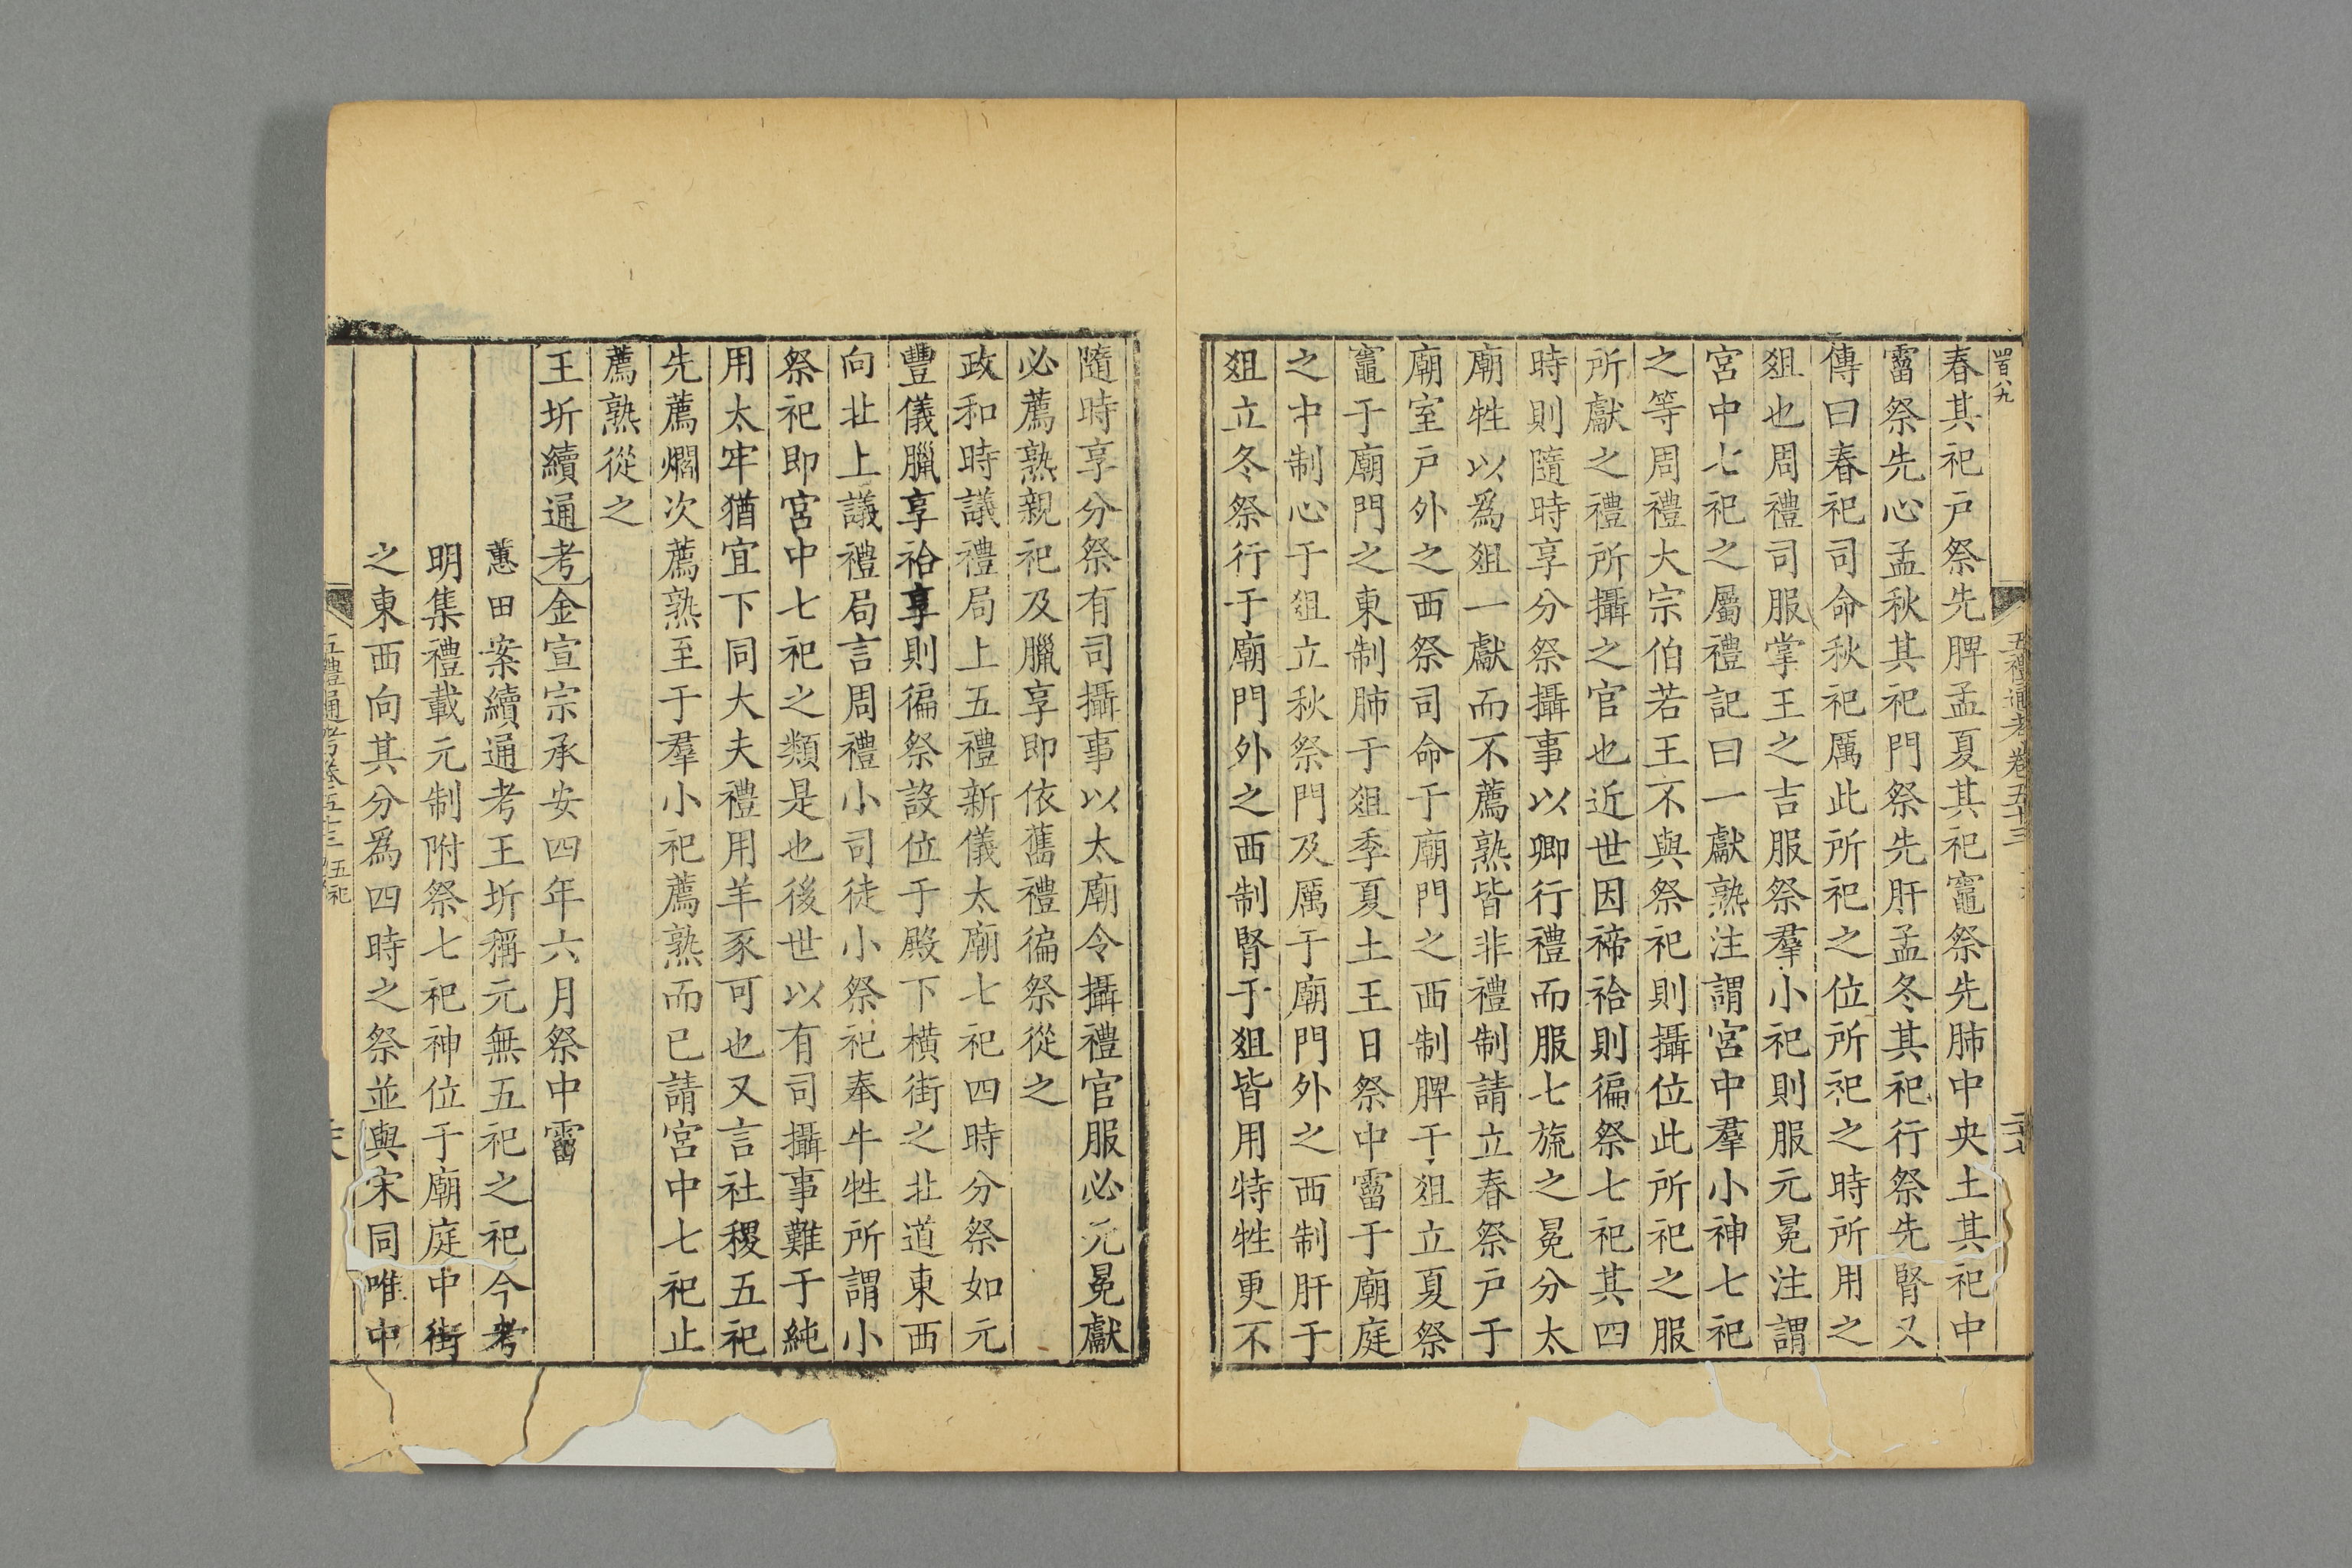 五禮通考卷五十三
春其祀戶祭先脾孟夏其祀竈祭先肺中央土其祀中
霤祭先心孟秋其祀門祭先肝孟冬其祀行祭先腎又
傳曰春祀司命秋祀厲此所祀之位所祀之時所用之
俎也周禮司服掌王之吉服祭羣小祀則服元冕注謂
宮中七祀之屬禮記曰一獻熟注謂宮中羣小神七祀
之等周禮大宗伯若王不與祭祀則攝位此所祀之服
所獻之禮所攝之官也近世因禘祫則徧祭七祀其四
時則隨時享分祭攝事以卿行禮而服七旒之冕分太
廟牲以爲俎一獻而不薦熟皆非禮制請立春祭戶于
廟室戶外之西祭司命于廟門之西制脾于俎立夏祭
竈于廟門之東制肺于俎季夏土王日祭中霤于廟庭
之中制心于俎立秋祭門及厲于廟門外之西制肝于
俎立冬祭行于廟門外之西制腎于俎皆用特牲更不
隨時享分祭有司攝事以太廟令攝禮官服必元冕獻
必薦熟親祀及臘享即依舊禮徧祭從之
政和時議禮局上五禮新儀太廟七祀四時分祭如元
豐儀臘享祫享則徧祭設位于殿下橫街之北道東西
向北上議禮局言周禮小司徒小祭祀奉牛牲所謂小
祭祀即宮中七祀之類是也後世以有司攝事難于純
用太牢猶宜下同大夫禮用羊豕可也又言社稷五祀
先薦爓次薦熟至于羣小祀薦熟而已請宮中七祀止
薦熟從之
王圻續通考金宣宗承安四年六月祭中霤
蕙田案續通考王圻稱元無五祀之祀今考
明集禮載元制附祭七祀神位于廟庭中街
之東西向其分爲四時之祭並與宋同唯中
五禮通考卷五十三 五祀